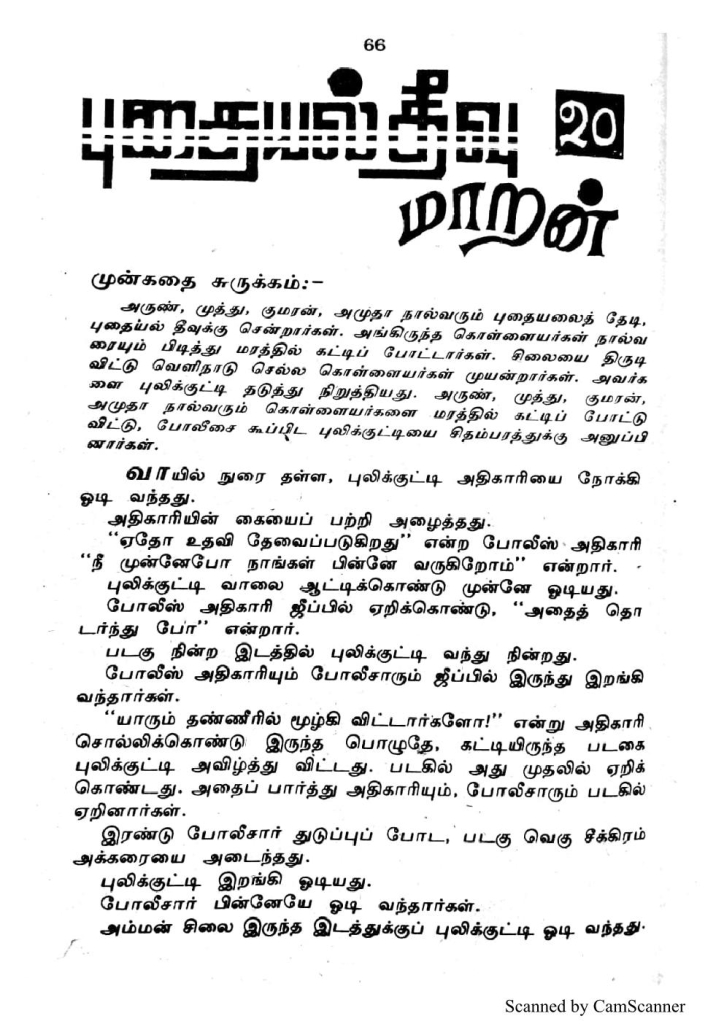 66
புதையல் தீவு 20
மாறன்
முன்கதை சுருக்கம்:–
அருண், முத்து, குமரன், அமுதா நால்வரும் புதையலைத் தேடி,
புதையல் தீவுக்கு சென்றார்கள். அங்கிருந்த கொள்ளையர்கள் நால்வ
ரையும் பிடித்து மரத்தில் கட்டிப் போட்டார்கள். சிலையை திருடி
விட்டு வெளிநாடு செல்ல கொள்ளையர்கள் முயன்றார்கள். அவர்க
ளை புலிக்குட்டி தடுத்து நிறுத்தியது. அருண், முத்து, குமரன்,
அமுதா நால்வரும் கொள்ளையர்களை மரத்தில் கட்டிப் போட்டு
விட்டு, போலீசை கூப்பிட புலிக்குட்டியை சிதம்பரத்துக்கு அனுப்பி
னார்கள்.
வாயில் நுரை தள்ள, புலிக்குட்டி அதிகாரியை நோக்கி
ஓடி வந்தது.
அதிகாரியின் கையைப் பற்றி அழைத்தது.
“ஏதோ உதவி தேவைப்படுகிறது” என்ற போலீஸ் அதிகாரி
“நீ முன்னேபோ நாங்கள் பின்னே வருகிறோம்” என்றார்.
புலிக்குட்டி வாலை ஆட்டிக்கொண்டு முன்னே ஓடியது.
போலீஸ் அதிகாரி ஜீப்பில் ஏறிக்கொண்டு, “அதைத் தொ
டர்ந்து போ” என்றார்.
படகு நின்ற இடத்தில் புலிக்குட்டி வந்து நின்றது.
போலீஸ் அதிகாரியும் போலீசாரும் ஜீப்பில் இருந்து இறங்கி
வந்தார்கள்.
“யாரும் தண்ணீரில் மூழ்கி விட்டார்களோ!” என்று அதிகாரி
சொல்லிக்கொண்டு இருந்த பொழுதே, கட்டியிருந்த படகை
புலிக்குட்டி அவிழ்த்து விட்டது. படகில் அது முதலில் ஏறிக்
கொண்டது. அதைப் பார்த்து அதிகாரியும், போலீசாரும் படகில்
ஏறினார்கள்.
இரண்டு போலீசார் துடுப்புப் போட, படகு வெகு சீக்கிரம்
அக்கரையை அடைந்தது.
புலிக்குட்டி இறங்கி ஓடியது.
போலீசார் பின்னேயே ஓடி வந்தார்கள்.
அம்மன் சிலை இருந்த இடத்துக்குப் புலிக்குட்டி ஓடி வந்தது.
Scanned by CamScanner